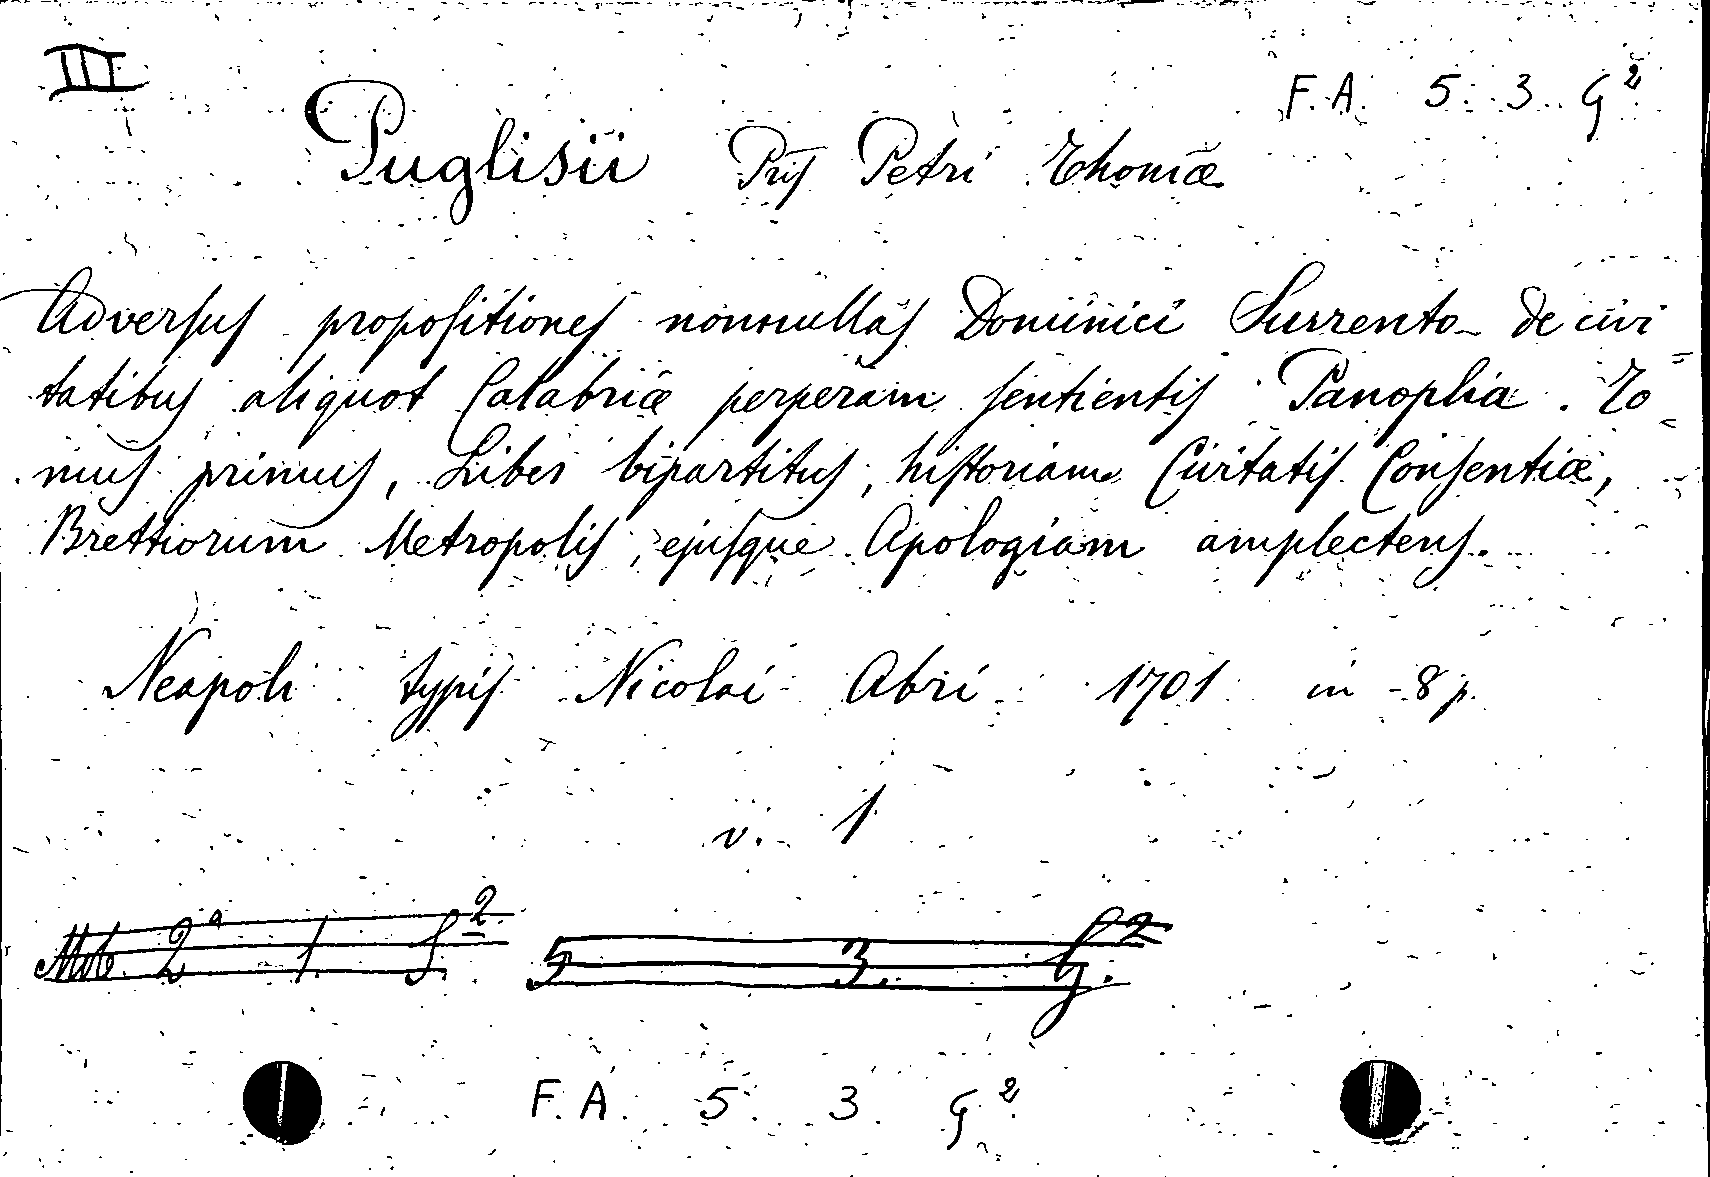 III
F. A. 5. 3. G²
Puglisii Pris Petri Thomæ
Adversus propositiones nonnullas Dominici Surrento de civi
tatibus aliquot Calabriæ perperam sentientis Panoplia. To=
mus primus, Liber bipartitus, historiam Civitatis Consentiæ,
Brettiorum Metropolis, ejusque Apologiam amplectens.
Neapoli typis Nicolai Abri 1701 in -8 p.
v. 1
2ª 1. S² 5 3. G.²
F. A. 5. 3. G²